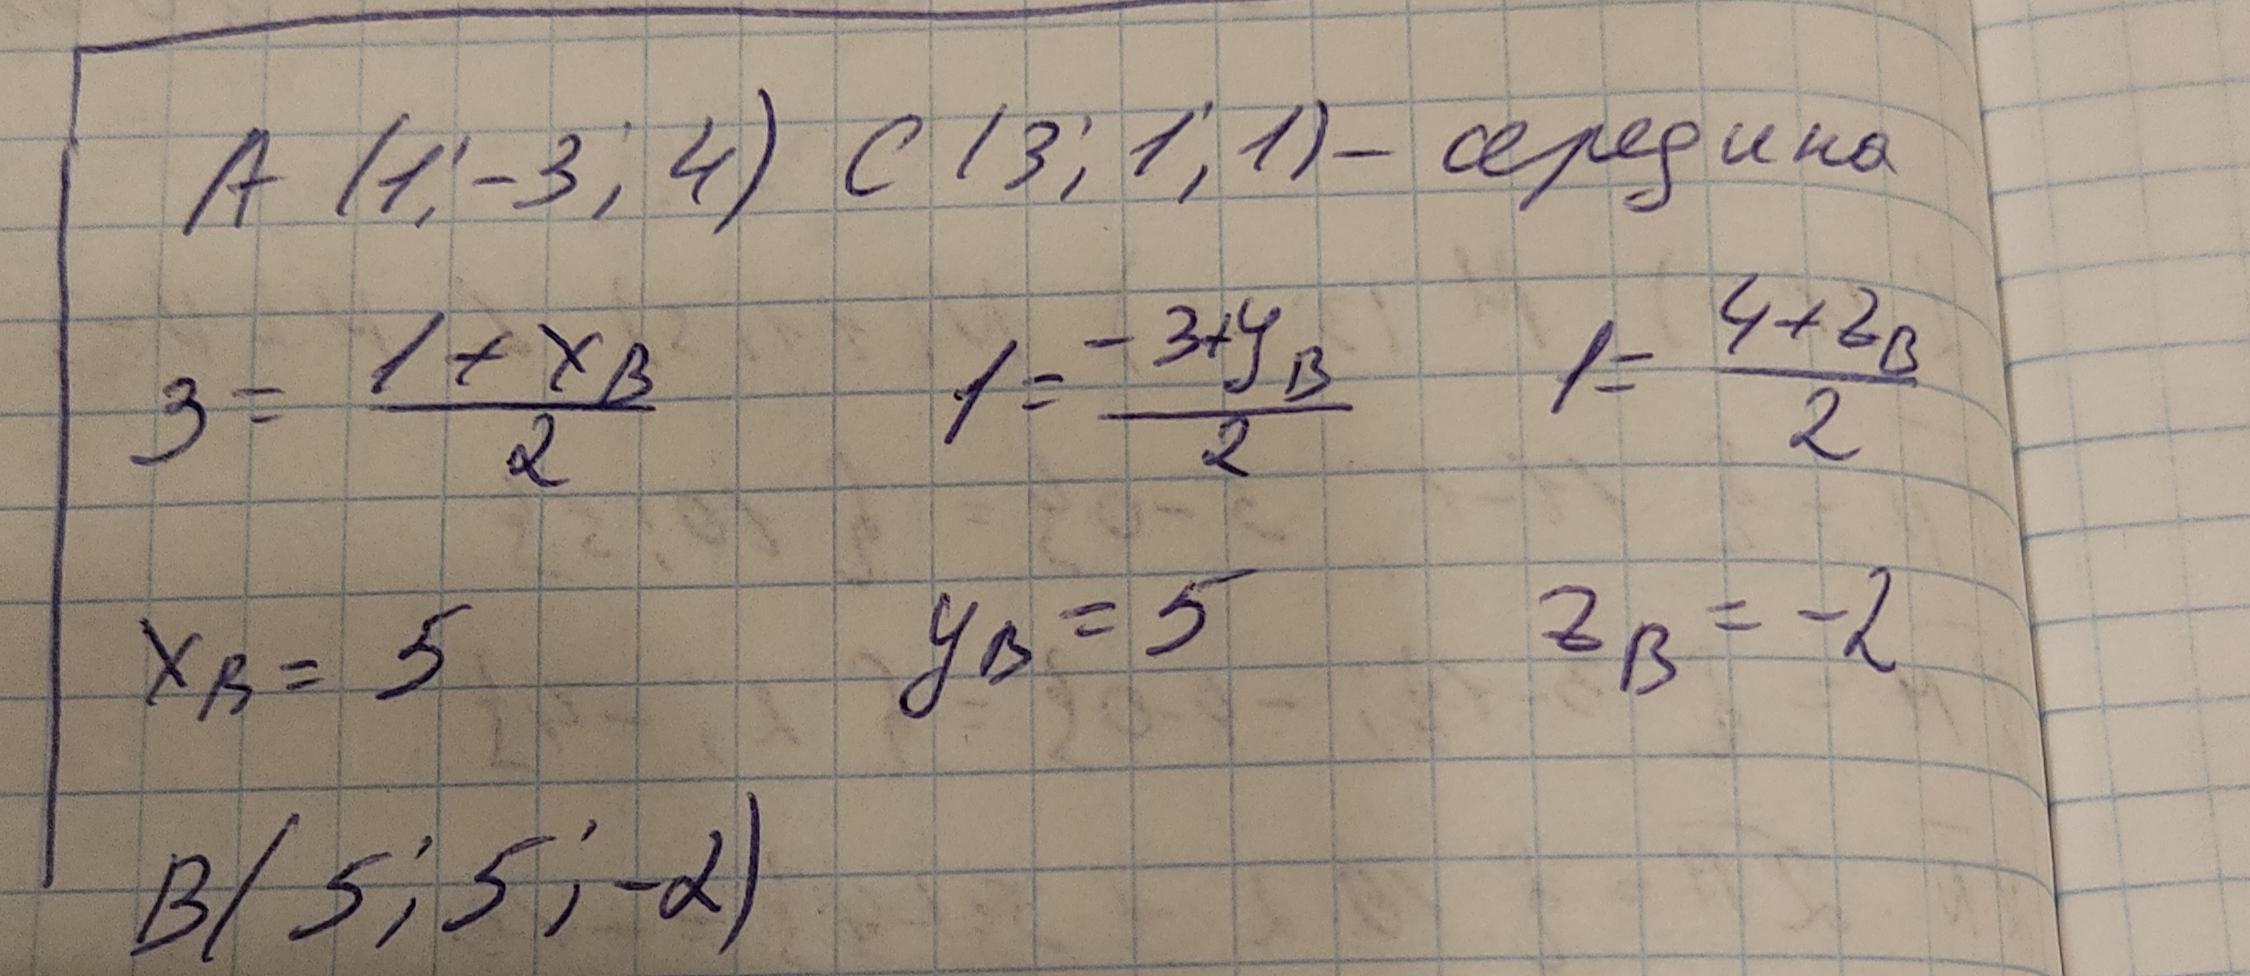 A (1; -3; 4) C (3; 1; 1) - середина
3 = (1 + x_B)/2 1 = (-3 + y_B)/2 1 = (4 + z_B)/2
x_B = 5 y_B = 5 z_B = -2
B (5; 5; -2)